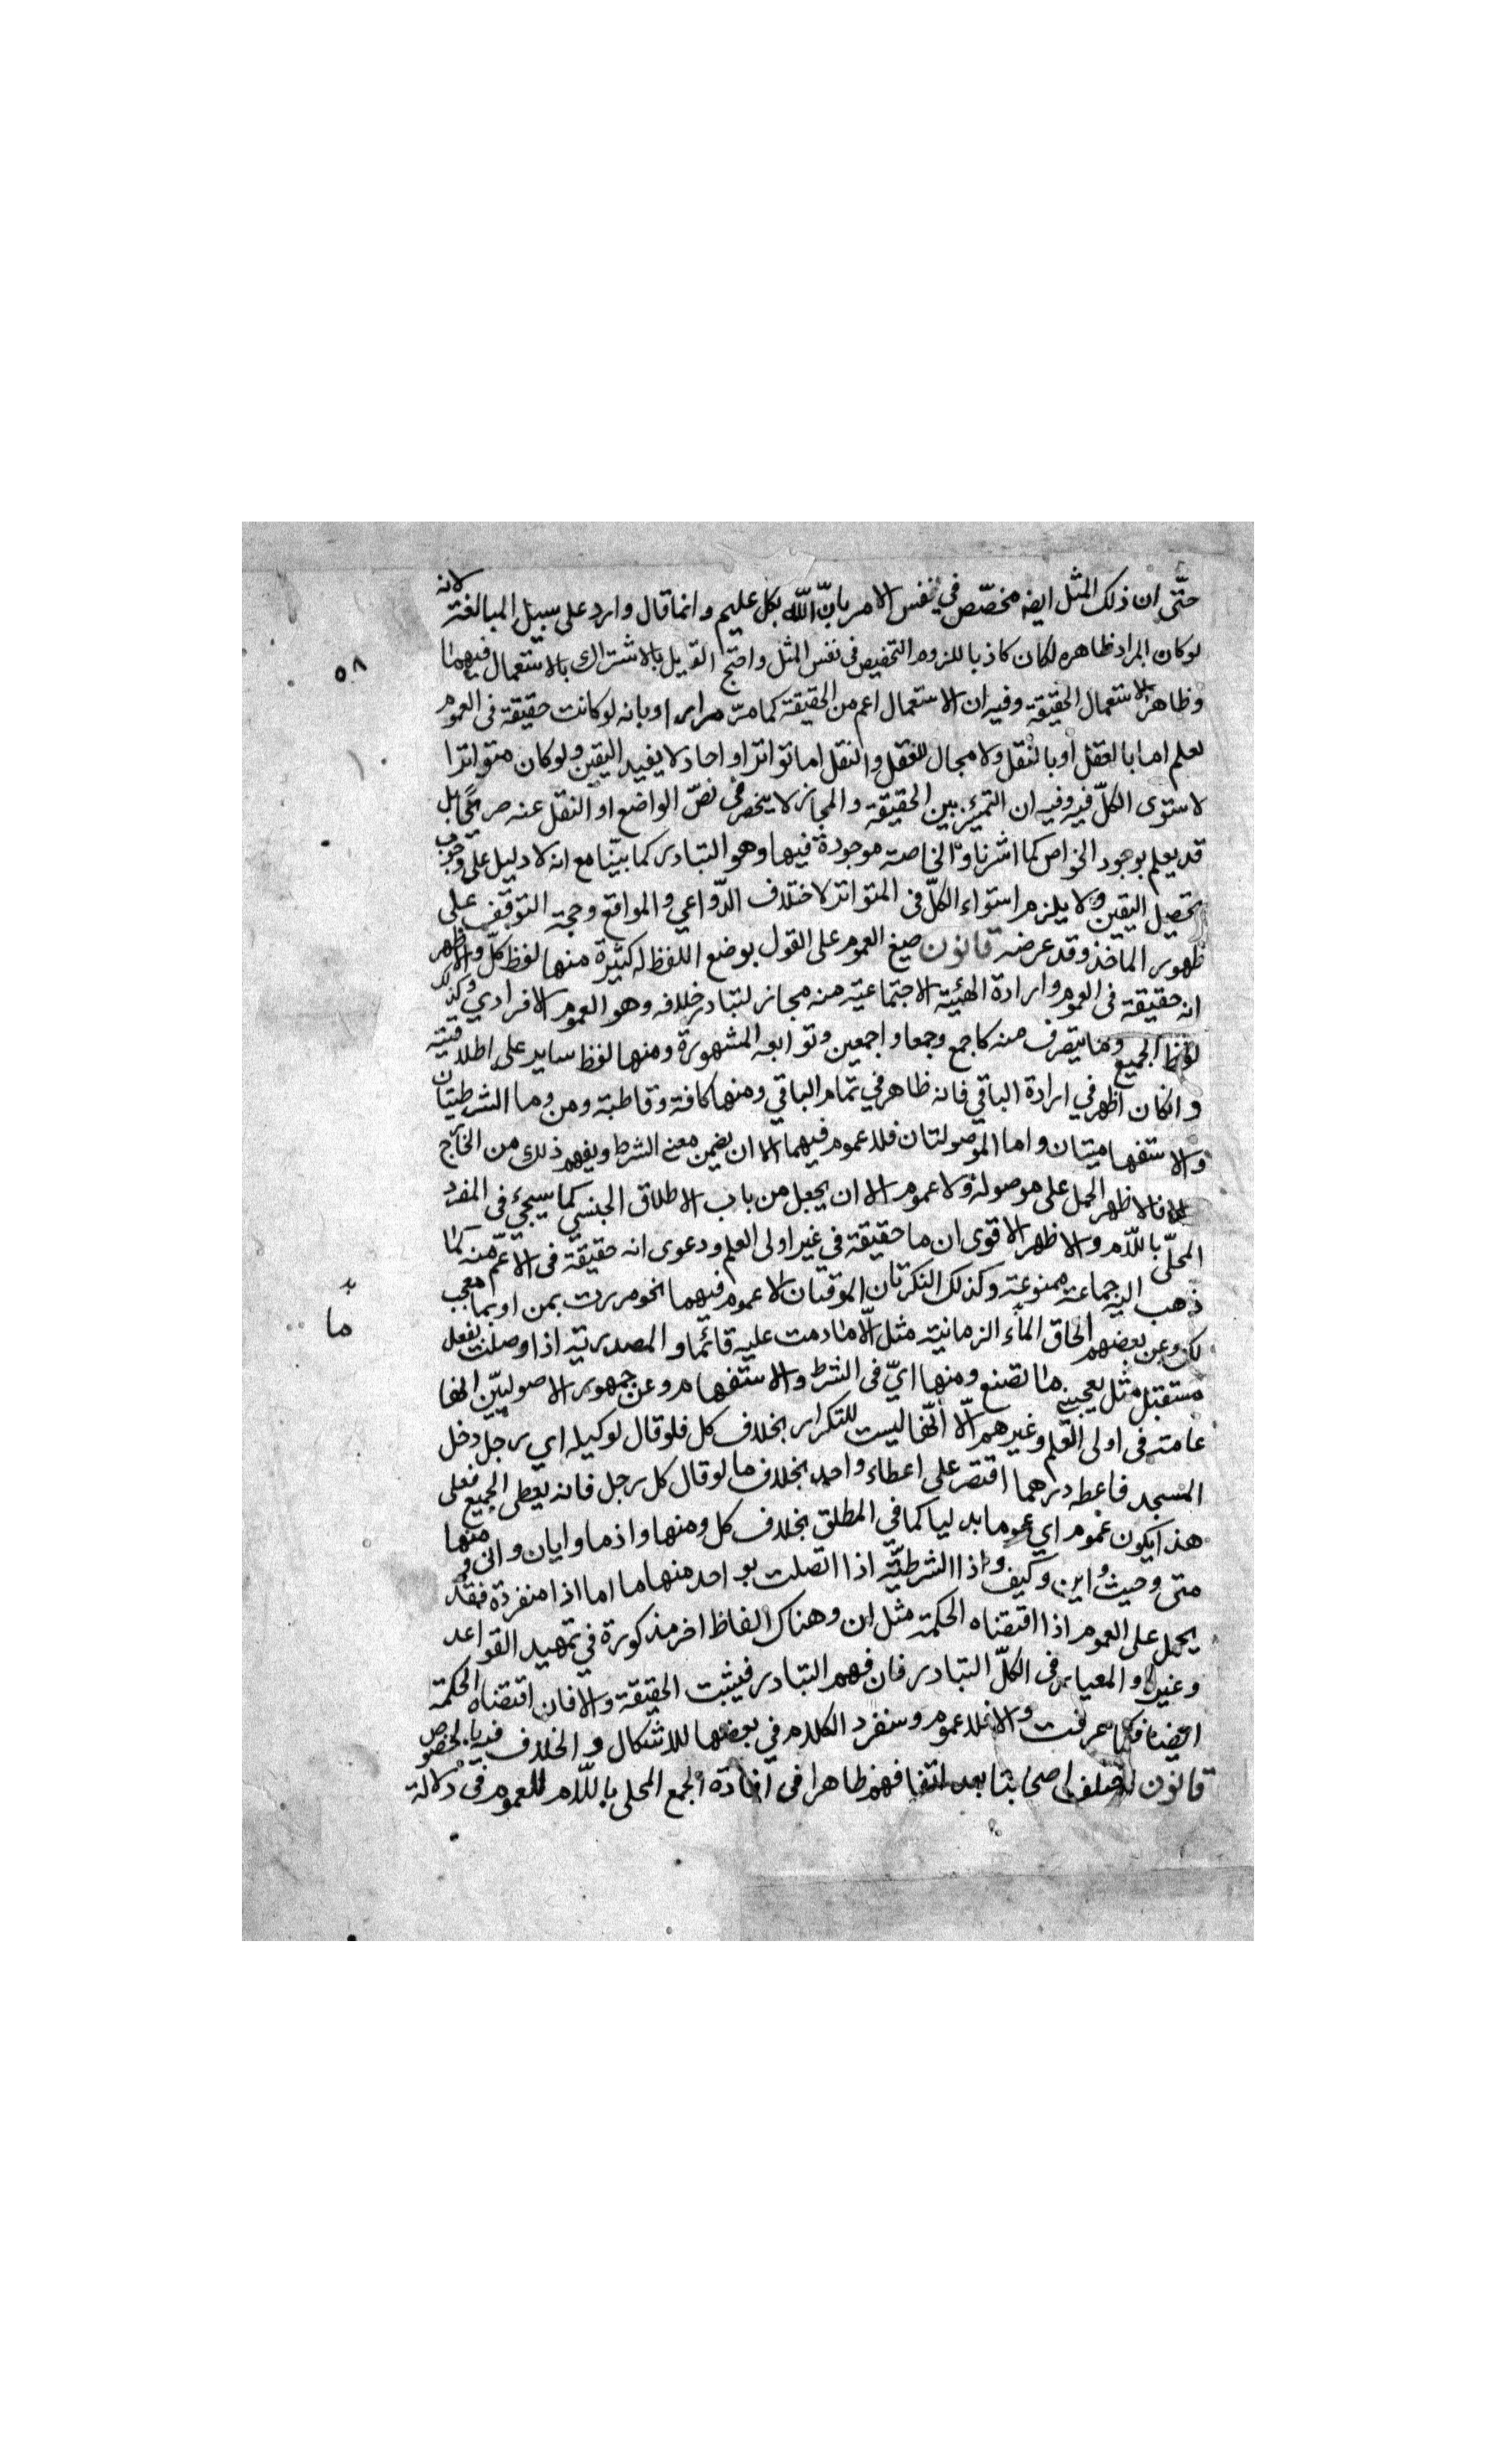 حتّى ان ذلك المثل ايضه مخصّص في نفس الامر بانّ الله بكل عليم و انما قال وارد على سبيل المبالغة لانه
لو كان المراد ظاهره لكان كاذبا للزوم التخصيص في نفس المثل واحتج القايل بالاشتراك بالاستعمال فيهما
وظاهر الاستعمال الحقيقة وفيه ان الاستعمال اعم من الحقيقة كما مرّ مرارا وبانه لو كانت حقيقة في العموم
لعلم اما بالعقل او بالنقل ولا مجال للعقل والنقل اما تواترا او احاد لا يفيد اليقين ولو كان متواترا
لاستوى الكلّ فيه وفيه ان التميّز بين الحقيقة والمجاز لا ينحصر في نصّ الواضع او النقل عنه صريحًا بل
قد يعلم بوجود الخواص كما اشرنا والخاصة موجودة فيها وهو التبادر كما بيّنا مع انه لا دليل على وجوب
تحصيل اليقين ولا يلزم استواء الكلّ في المتواتر لاختلاف الدّواعي والموانع وحجة التوقّف على
ظهور الماخذ وقد عرضه قانون صيغ العموم على القول بوضع اللفظ له كثيرة منها لفظ كلّ والاظهر
انه حقيقة في العموم وارادة الهيئة الاجتماعية منه مجاز لتبادر خلافه وهو العموم الافرادي وكذلك
لفظ الجميع وما يتصرف منه كاجمع وجمعا واجمعين وتوابعه المشهورة ومنها لفظ ساير على اطلاقيته
وانكان اظهر في ارادة الباقي فانه ظاهر في تمام الباقي ومنها كافة وقاطبة ومن وما الشرطيتان
والاستفهاميتان واما الموصولتان فلا عموم فيهما الا ان يضمن معنى الشرط ويفهم ذلك من الخارج
فالاظهر الحمل على موصولة ولا عموم الا ان يجعل من باب الاطلاق الجنسي كما سيجيء في المفرد
المحلّى باللّام والاظهر الاقوى ان ما حقيقة في غير اولى العلم ودعوى انه حقيقة في الاعمّ منه كما
ذهب اليه جماعة ممنوعة وكذلك النكرتان الموقتان لا عموم فيهما نحو مررت بمن او بما معجب
لك وعن بعضهم الحاق الماء الزمانية مثل الّا ما دمت عليه قائمًا والمصدرية اذا وصلت بفعل
مستقبل مثل يعجبني ما تصنع ومنها ايّ في الشرط والاستفهام وعن جمهور الاصوليّين انها
عامة في اولى العلم وغيرهم الّا انّها ليست للتكرار بخلاف كل فلو قال لوكيله اي رجل دخل
المسجد فاعطه درهما اقتصر على اعطاء واحد بخلاف ما لو قال كل رجل فانه يعطى الجميع فعلى
هذا يكون عموم اي عموما بدليا كما في المطلق بخلاف كل ومنها واذما وايان وانى ومنها
متى وحيث واين وكيف واذا الشرطيّة اذا اتصلت بواحد منها ما اما اذا منفردة فقد
يحمل على العموم اذا اقتقناه الحكمة مثل ان وهناك الفاظ اخر مذكورة في تمهيد القواعد
وغيره والمعيار في الكلّ التبادر فان فهم التبادر فيثبت الحقيقة والا فان اقتقناه الحكمة
ايضا فكما عرفت والا فلا عموم وسنفرد الكلام في بعضها للاشكال والخلاف فيه بالخصوص
قانون اختلف اصحابنا بعد اتفاقهم ظاهرا في افادة الجمع المحلى باللّام للعموم في دلالة
٥٨
ما